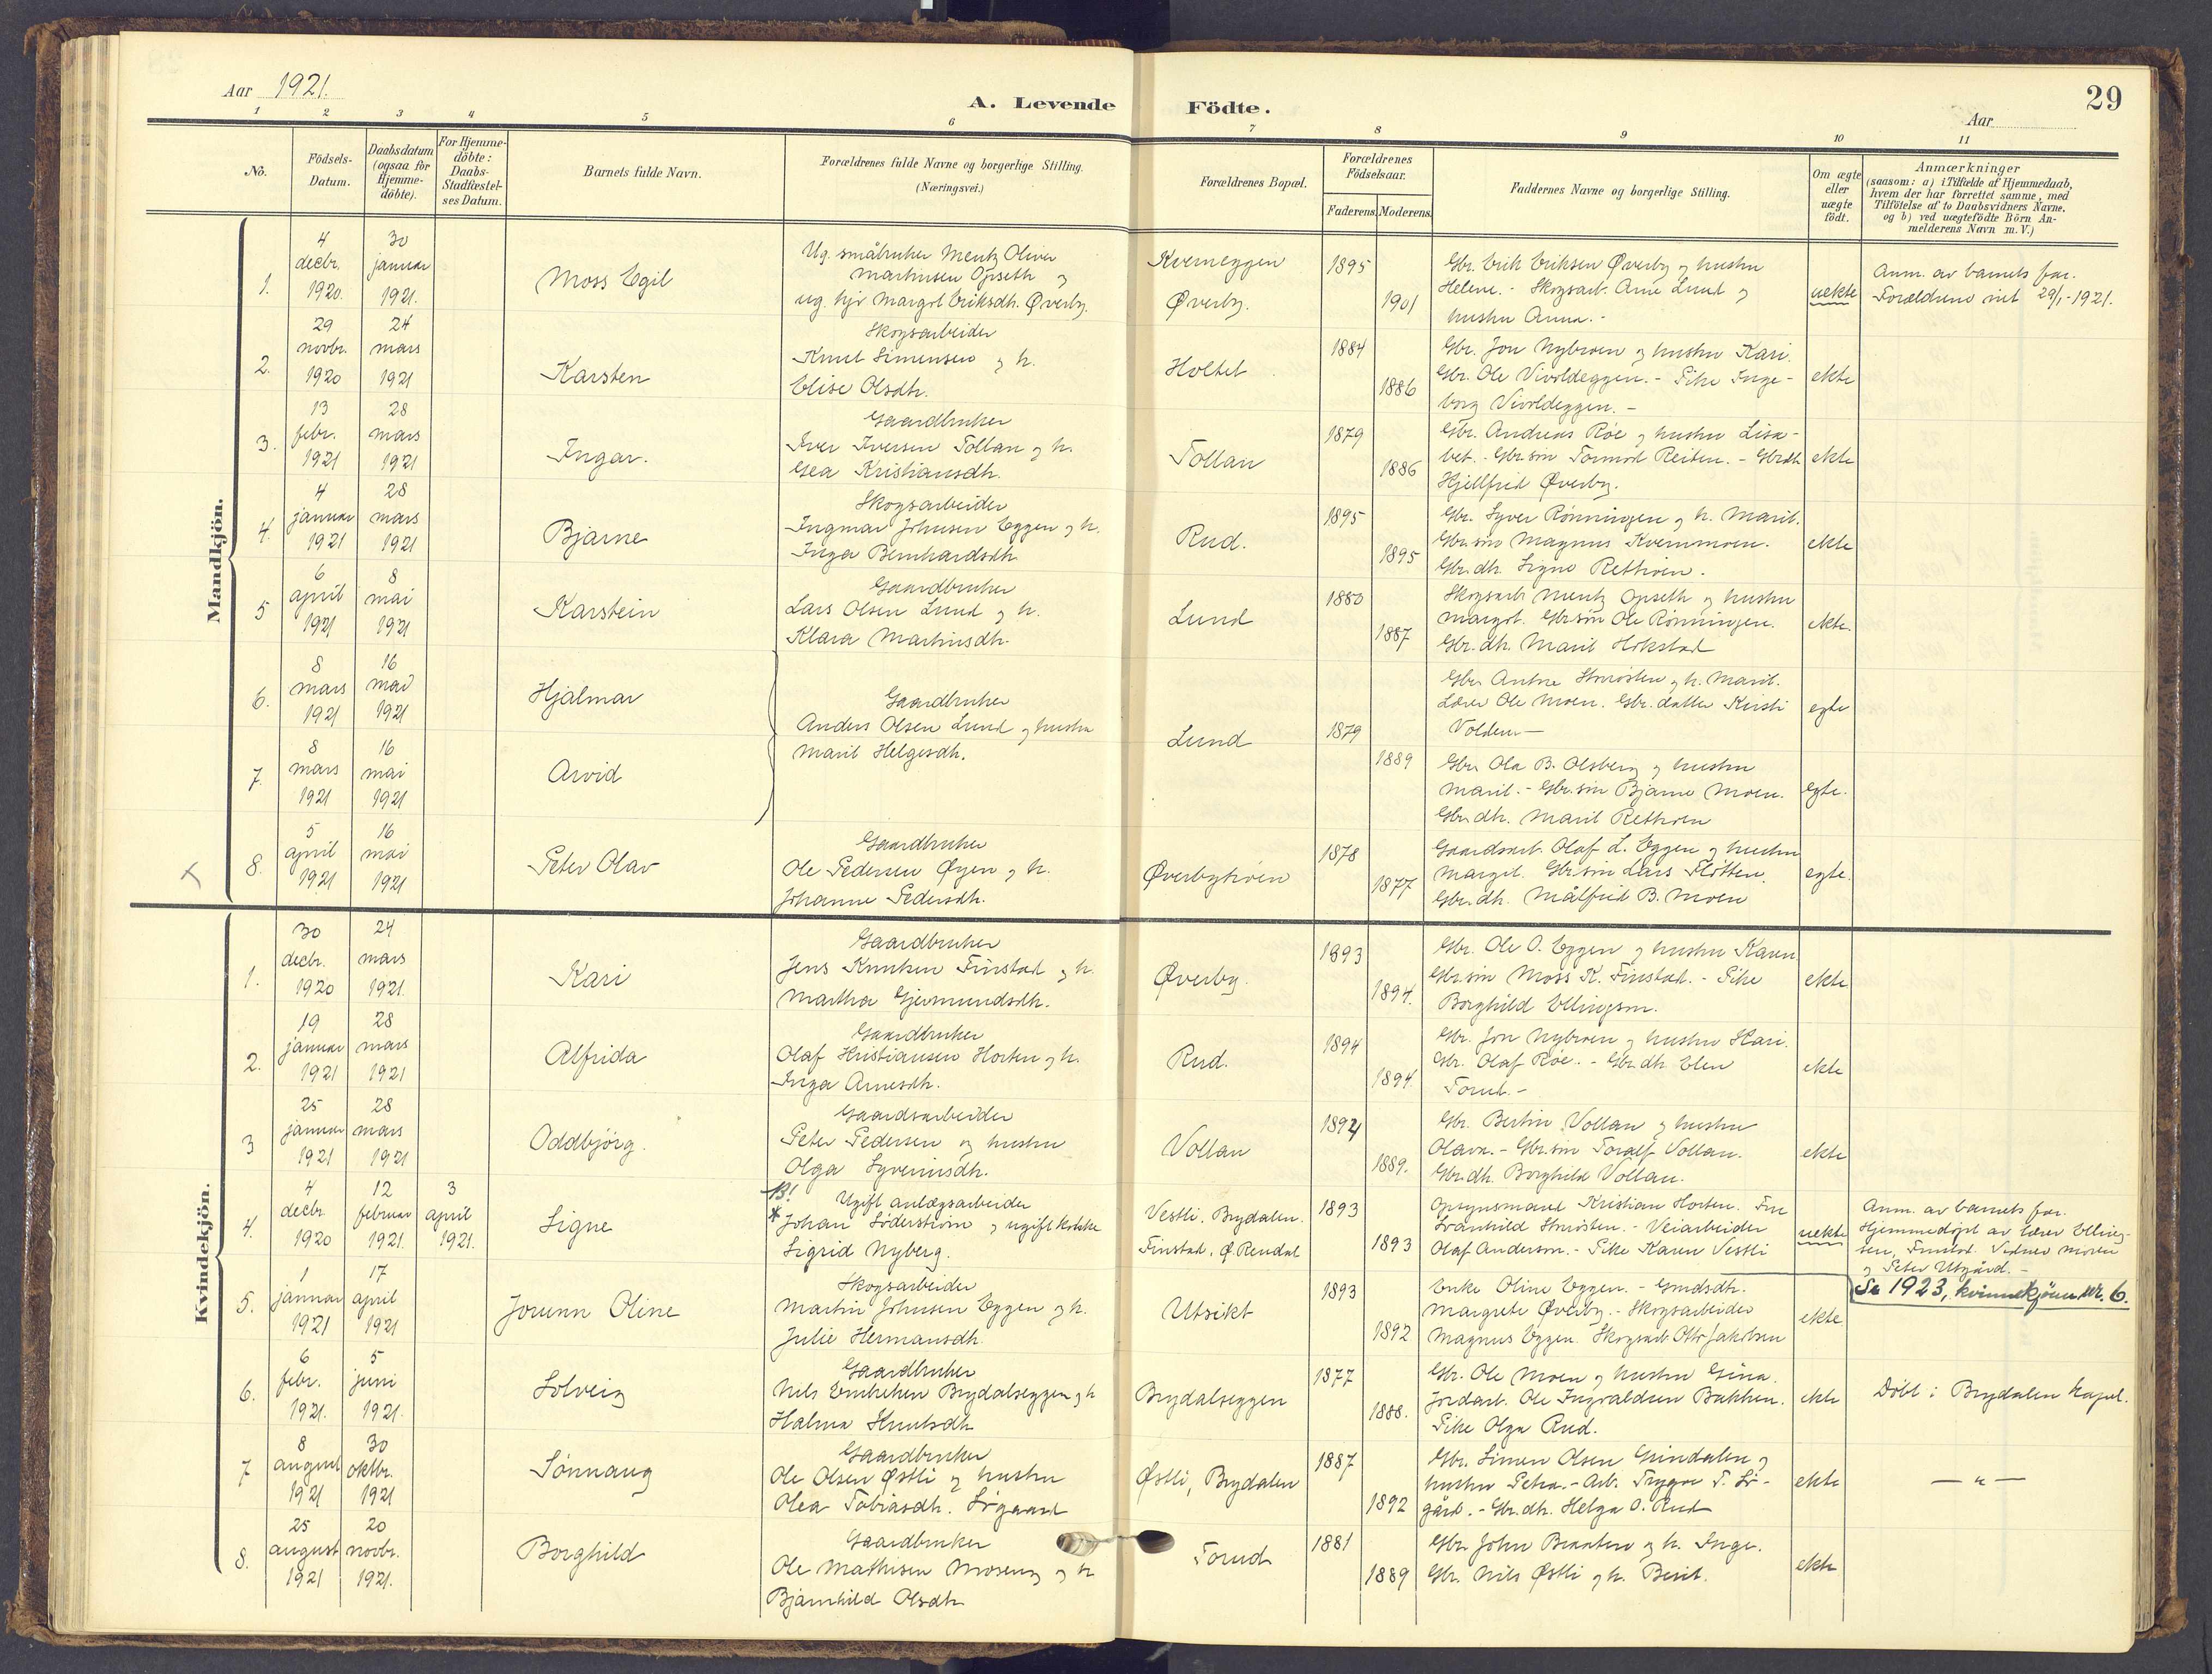 Aar 1921.
A. Levende Födte.
29
Aar
1 2 3 4 5 6 7 8 9 10 11
No.
Födsels-
Datum.
Daabsdatum
(ogsaa for
Hjemme-
döbte).
For Hjemme-
döbte:
Daabs-
Stadfæstel-
ses Datum.
Barnets fulde Navn.
Forældrenes fulde Navne og borgerlige Stilling.
(Næringsvei.)
Forældrenes Bopæl.
Forældrenes
Födselsaar.
Faderens. Moderens.
Faddernes Navne og borgerlige Stilling.
Om ægte
eller
uægte
födt.
Anmærkninger
(saasom: a) i Tilfælde af Hjemmedaab,
hvem der har forrettet samme, med
Tilföielse af to Daabsvidners Navne.
og b) ved uægtefödte Börn An-
melderens Navn m. V.)
Mandkjön.
1.
4
decbr.
1920.
30
januar
1921.
Moss Egil
Ug. småbruker Mentz Oliver
Martinsen Opseth og
ug. Margot Eriksdh. Øverby.
Kverneggen
Øverby.
1895
1901
Gbr. Erik Eriksen Øverby og hustru
Helene. - Skogsarb. Arne Lund og
hustru Anna. -
uekte
Anm. av barnets far.
Forældrene viet 29/1-1921.
2.
29
novbr.
1920
24
mars
1921
Karsten
Skogsarbeider
Knut Simensen og h.
Elise Olsdh.
Holtet
1884
1886
Gbr. Jon Nybroen og hustru Kari.
Gbr. Ole Vivoldeggen. - Pike Inge-
borg Vivoldeggen. -
ekte
3.
13
febr.
1921
28
mars
1921
Ingar.
Gaardbruker
Iver Iversen Tollan og h.
Gea Kristiansdh.
Tollan
1879
1886
Gbr. Andreas Røe og hustru Lisa-
bet. - Gbr.søn Tormod Reiten. - Gbr.dh.
Hjellfrid Øverby.
ekte
4.
4
januar
1921
28
mars
1921
Bjarne
Skogsarbeider
Ingmar Johnsen Eggen og h.
Inga Bernhardsdh.
Rud.
1895
1895
Gbr. Syver Rønningen og h. Marit.
Gbr.søn Magnus Kvernmoen.
Gbr.dh. Signe Rethoen.
ekte
5
6
april
1921
8
mai
1921
Karstein
Gaardbruker
Lars Olsen Lund og h.
Klara Martinsdh.
Lund
1880
1887
Skogsarb. Mentz Opseth og hustru
Margot. Gbr.søn Ole Rønningen.
Gbr.dh. Marit Hokstad
ekte.
6.
8
mars
1921
16
mai
1921
Hjalmar
Gaardbruker
Anders Olsen Lund og hustru
Marit Helgesdh.
Lund
1879
1889
Gbr. h. Marit.
Lærer Ole Moen. Gbr. datter Kirsti
Volden -
egte
7.
8
mars
1921
16
mai
1921
Arvid
Gbr. Ola B. Olsberg og hustru
Marit. - Gbr.søn Bjarne Moen.
Gbr.dh. Marit Rethoen
egte.
8.
5
april
1921
16
mai
1921
Peter Olav
Gaardbruker
Ole Pedersen Øyen og h.
Johanne Pedersdh.
1878
1877
Gaardsarb. Olaf L. Eggen og hustru
Margit. Gbr.søn Lars Fløtten.
Gbr.dh. Målfrid B. Moen
egte.
Kvindekjön.
1.
30
decbr.
1920
24
mars
1921.
Kari
Gaardbruker
Jens Knutsen Finstad og h.
Martha Gjermundsdh.
Øverby.
1893
1894.
Gbr. Ole O. Eggen og hustru Karen
Gbr.søn Moss K. Finstad. - Pike
Borghild Ellingsen.
ekte
2.
19
januar
1921
28
mars
1921
Alfrida
Gaardbruker
Olaf Kristiansen Horten og h.
Inga Arnesdh.
Rud.
1894
1894.
Gbr. Jon Nybroen og hustru Kari.
Gbr. Olaf Røe. - Gbr.dh. Elen
Torud. -
ekte
3
25
januar
1921
28
mars
1921
Oddbjörg.
Gaardsarbeider
Peter Pedersen og hustru
Olga Syverinsdh.
Vollan
1892
1889.
Gbr. Bertin Vollan og hustru
Olava. - Gbr.søn Toralf Vollan.
Gbr.dh. Borghild Vollan.
ekte
4.
4
decbr.
1920
12
februar
1921.
3
april
1921.
Signe
B!
Ugift anlægsarbeider
* Johan Söderström og ugift kokke
Sigrid Nyberg.
Vestli, Brydalen.
Finstad, Ø. Rendal
1893
1893
Opsynsmand Kristian Horten. Fru
- Veiarbeider
Olaf Anderson. - Pike Karen Vestli
uekte
Anm. av barnets far.
Hjemmedøpt av lærer Elling-
sen, Finstad. Vidner moren
og Peter Utgård. -
Se 1923, kvinnekjønn nr. 6.
5.
1
januar
1921
17
april
1921
Jorunn Oline
Skogsarbeider
Martin Johnsen Eggen og h.
Julie Hermansdh.
Utsikt
1893
1892
Enke Oline Eggen. - Gmdsdh.
Margrete Øverby. - Skogsarbeider
Magnus Eggen. Skogsarb. Otto Jakobsen
ekte
6.
6
febr.
1921.
5
juni
1921.
Solveig
Gaardbruker
Nils Brydalseggen og h
Halma Knutsdh
Brydalseggen
1877
1888.
Gbr. Ole Moen og hustru Gina.
Jordarb. Ole Ingvaldsen Bakken.
Pike Olga Rud.
ekte
Døbt i Brydalen kapel.
7
8
august
1921
30
oktbr.
1921
Sønnaug
Gaardbruker
Ole Olsen Østli og hustru
Olea Tobiasdh. Søgaard
Østli, Brydalen
1887
1892
Gbr. Simen Olsen Grindalen og
hustru Petra. - Arb. Trygve T. Sø-
gård. - Gbr.dh. Helga O. Rud
ekte
— " —
8.
25
august
1921
20
novbr.
1921.
Borghild
Gaardbruker
Ole Mathisen Moseng og h
Bjarnhild Olsdh
Torud
1881
1889
Gbr. John Braaten og h. Inge.
Gbr. Nils Østli og h. Berit.
ekte